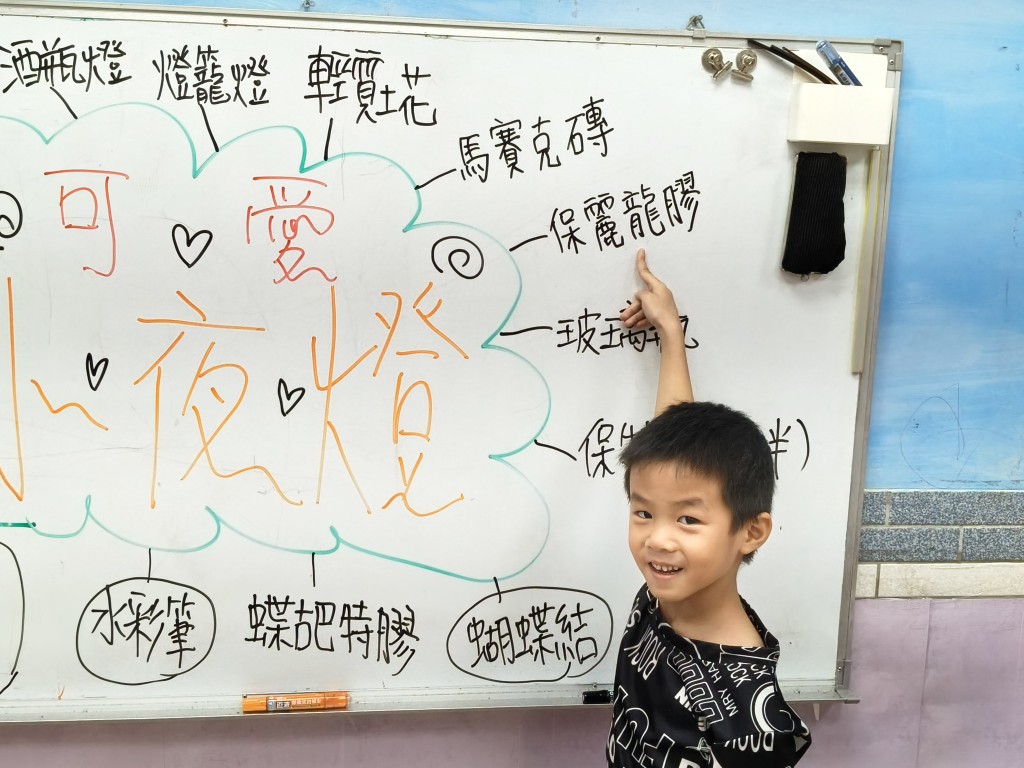 酒瓶燈 燈籠燈 輕質土花
馬賽克磚
可愛
保麗龍膠
小夜燈
玻璃
保
水彩筆 蝶芭特膠 蝴蝶結
BOOK